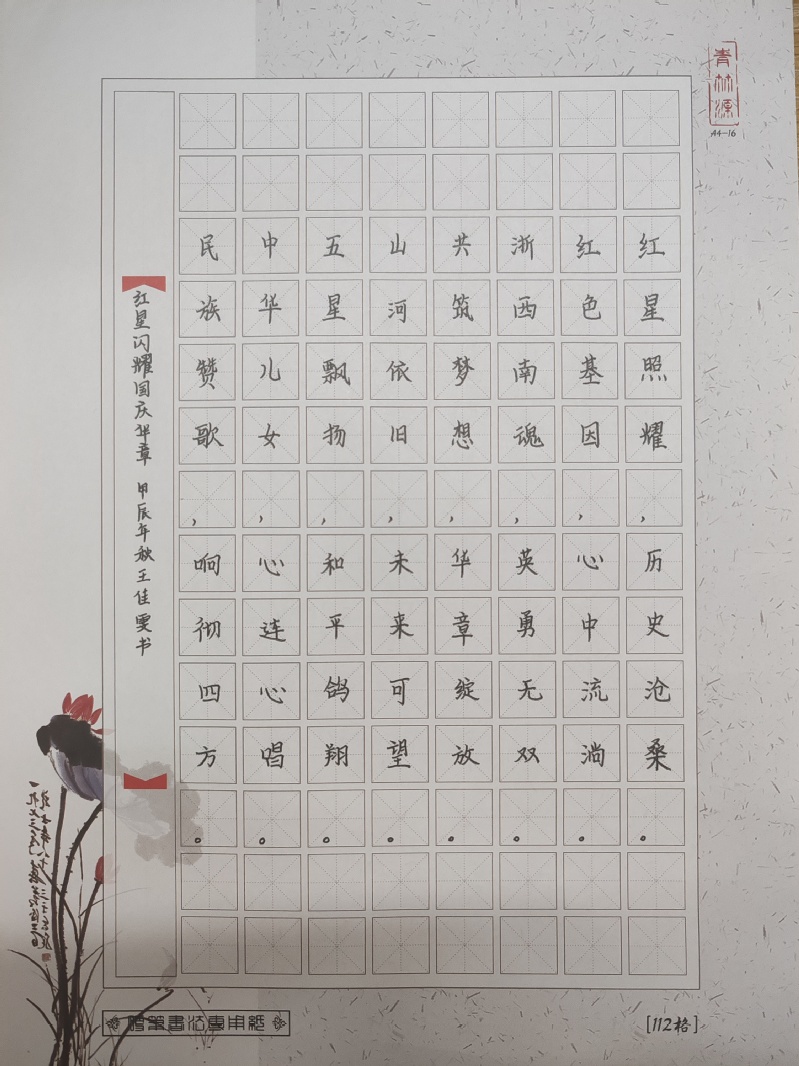 红星照耀，历史沧桑。
红色基因，心中流淌。
浙西南魂，英勇无双。
共筑梦想，华章绽放。
山河依旧，未来可望。
五星飘扬，和平鸽翔。
中华儿女，心连心唱。
民族赞歌，响彻四方。
红星闪耀国庆华章 甲辰年秋王佳雯书
青林源
A4-16
[112格]